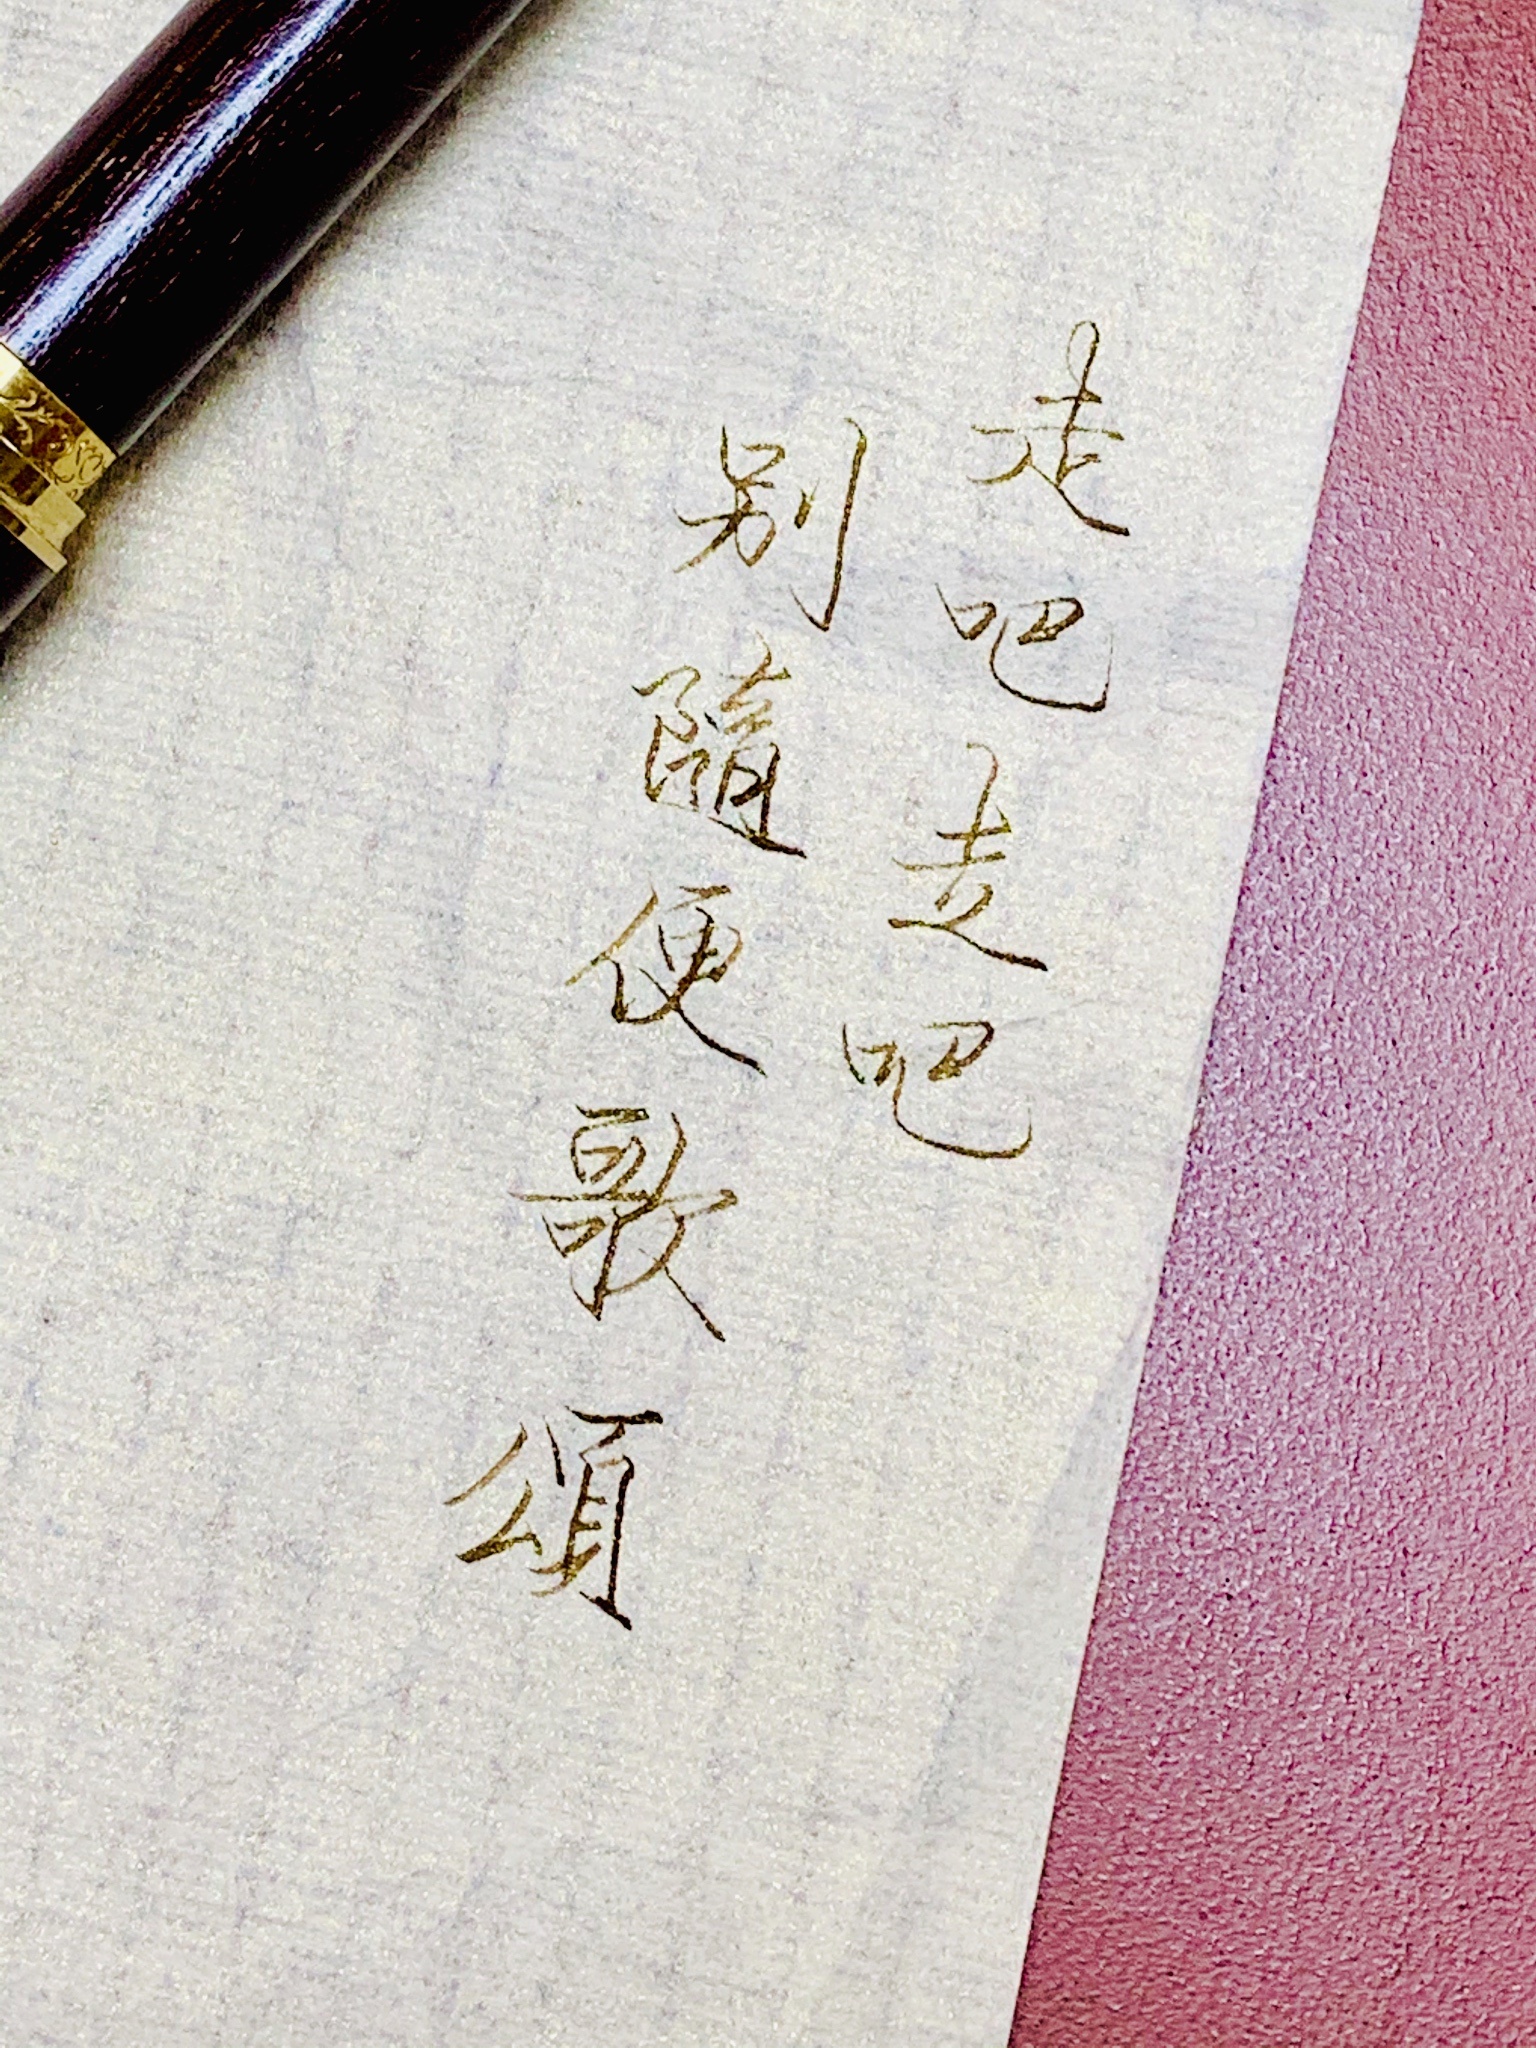 走吧走吧
别隨便歌頌